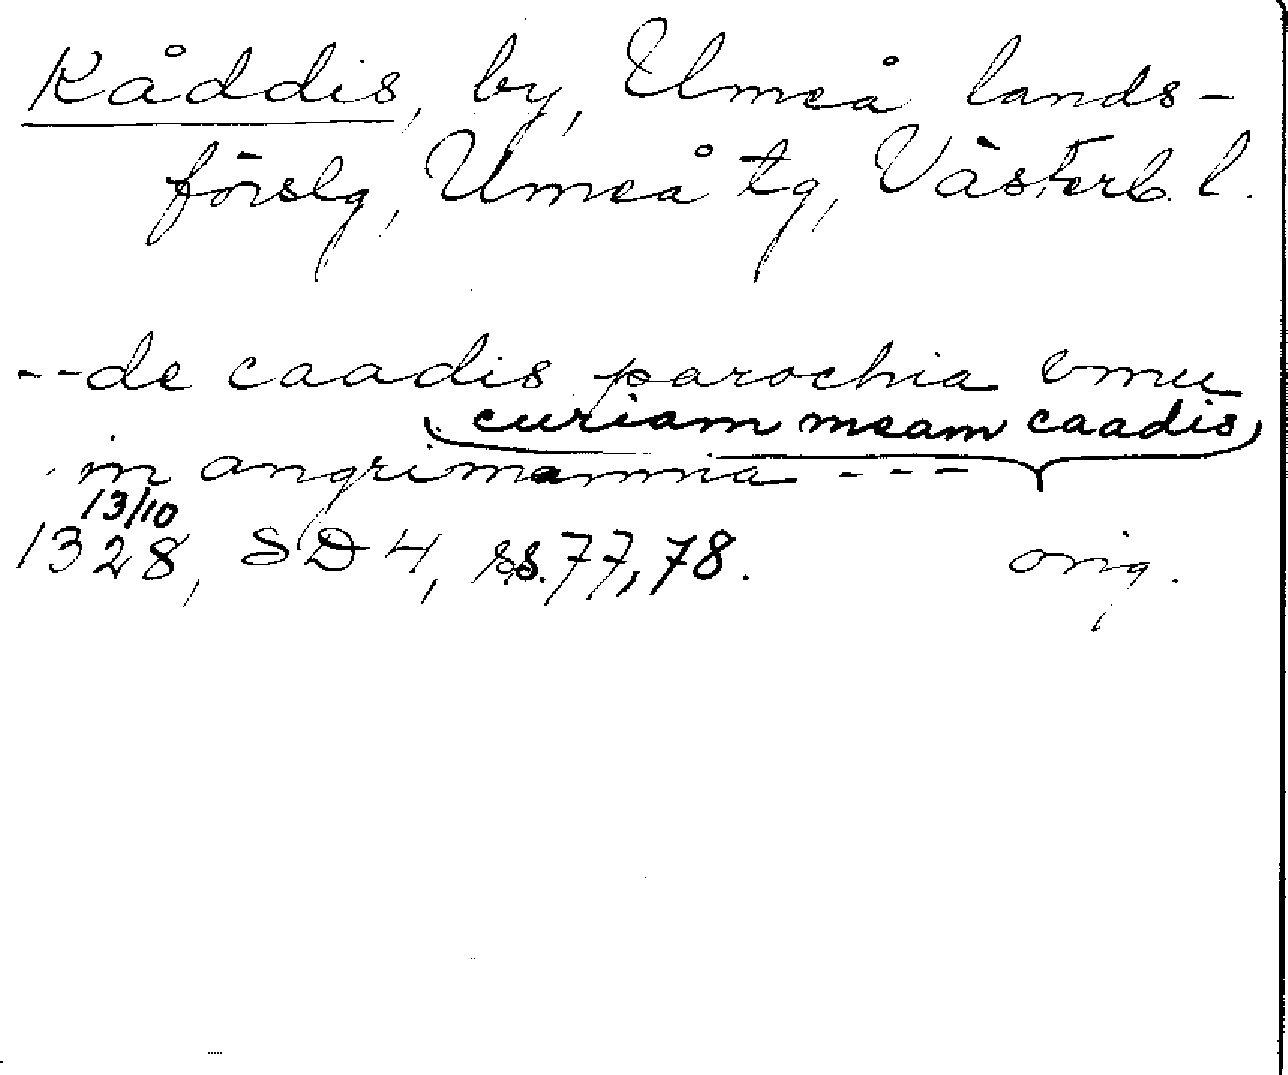 Kåddis, by, Umeå lands-
förslg, Umeå tg, Västerb. l.
--de caadis parochia vmu
curiam meam caadis
in angrimannia ---
13/10
1328, SD 4, ss. 77, 78. orig.